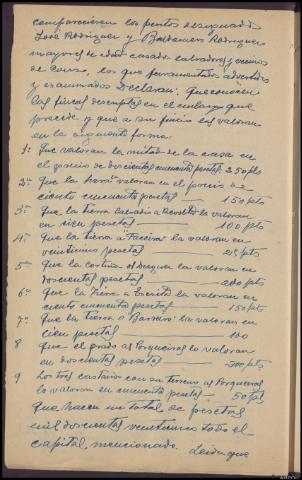 comparecieron los peritos designados
José Rodriguez y Baldomero Rodriguez
mayores de edad casados labradores y vecinos
de los que juramentados advertidos
y examinados Declaran: que conocen
las fincas descriptas en el embargo que
precede y que a su juicio las valoran
en la siguiente forma:
1ª Que valoran la mitad de la casa en
el precio de doscientas cincuenta pesetas 250 pts
2ª Que la valoran en el precio de
ciento cincuenta pesetas — 150 pts
3ª Que la tierra la valoran
en cien pesetas — 100 pts
4ª Que la tierra a la valoran en
veintiuna pesetas — 21 pts
5 Que la cortiña la valoran en
doscientas pesetas — 200 pts
6ª Que la tierra a la valoran en
ciento cincuenta pesetas — 150 pts
7ª Que la tierra a Barreiro la valoran en
cien pesetas — 100
8 que el prado al Porqueiros lo valoran
en doscientas pesetas — 200 pts
9 Los tres castaños con su terreno al Porqueiros
lo valoran en cincuenta pesetas — 50 pts
que hacen un total de pesetas
mil doscientas veintiuna todo el
capital mencionado. Leida que